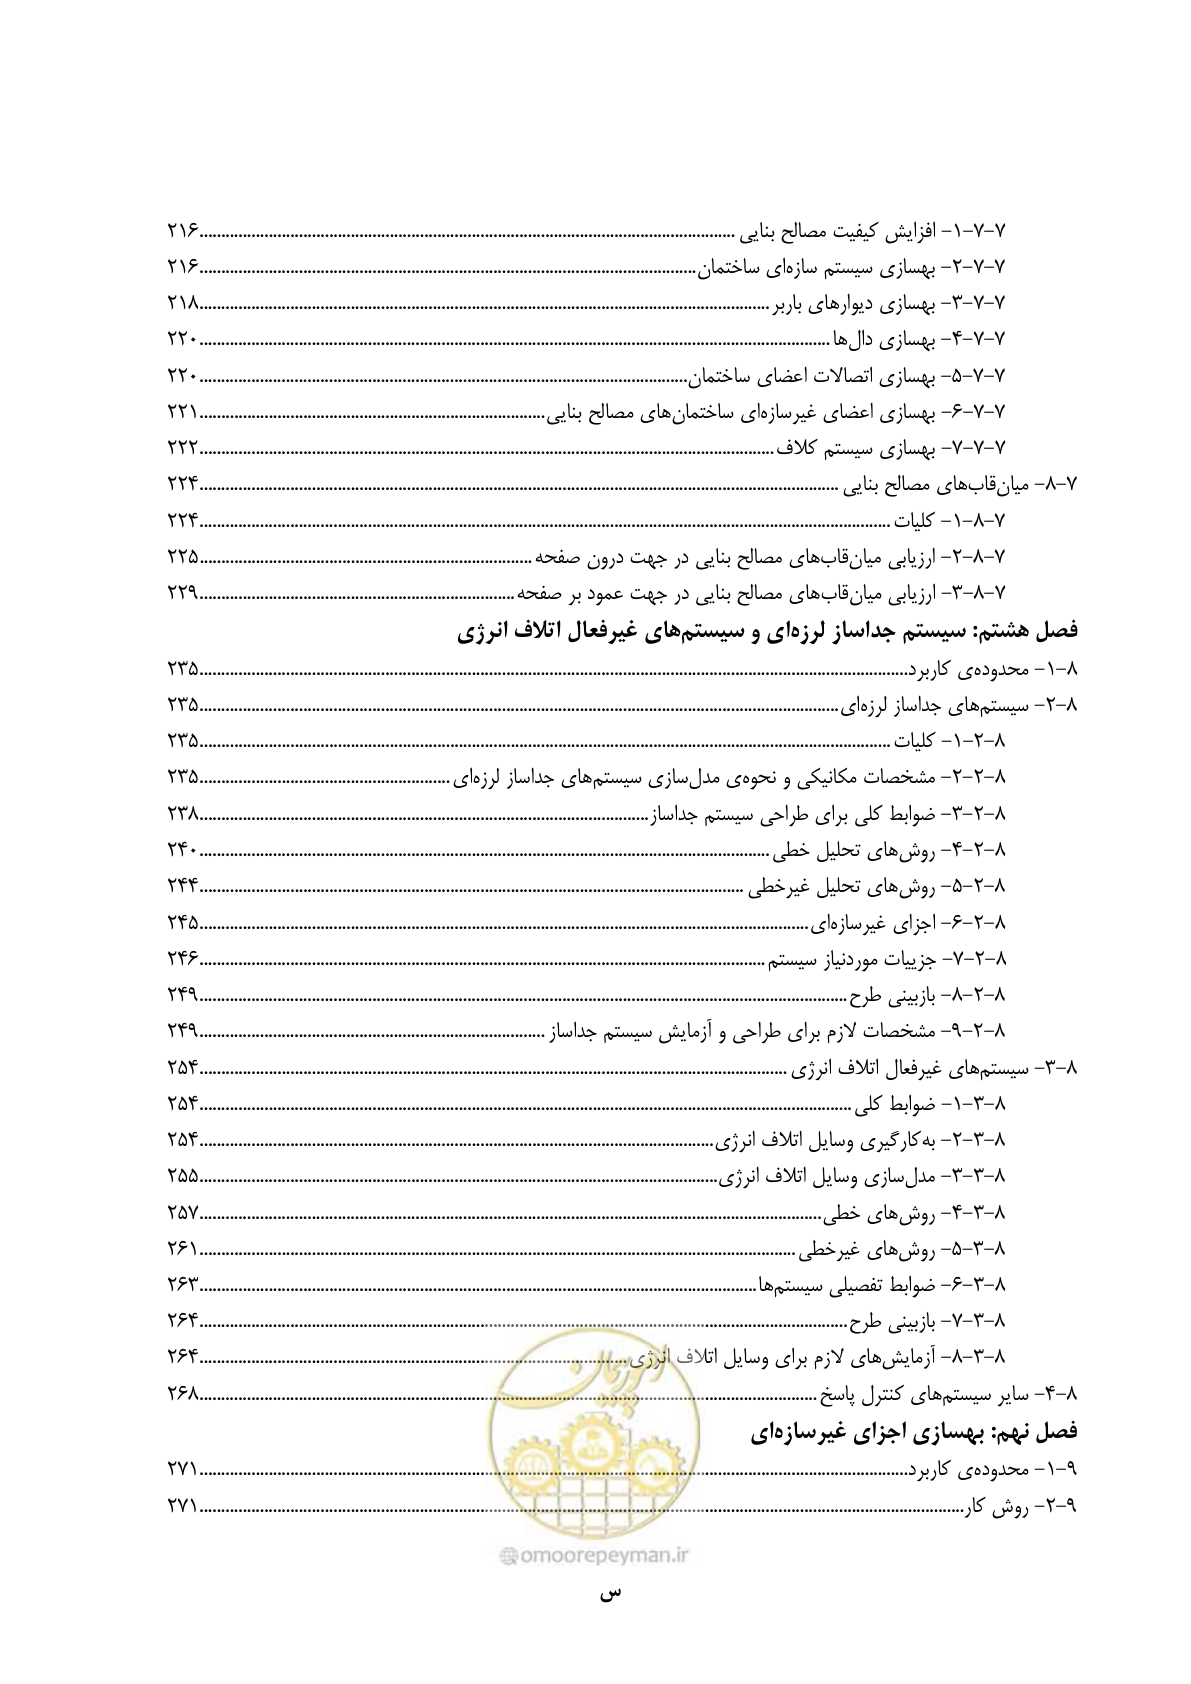 ۷-۷-۱- افزایش کیفیت مصالح بنایی ........ ۲۱۶
۷-۷-۲- بهسازی سیستم سازه‌ای ساختمان ........ ۲۱۶
۷-۷-۳- بهسازی دیوارهای باربر ........ ۲۱۸
۷-۷-۴- بهسازی دال‌ها ........ ۲۲۰
۷-۷-۵- بهسازی اتصالات اعضای ساختمان ........ ۲۲۰
۷-۷-۶- بهسازی اعضای غیرسازه‌ای ساختمان‌های مصالح بنایی ........ ۲۲۱
۷-۷-۷- بهسازی سیستم کلاف ........ ۲۲۲
۷-۸- میان‌قاب‌های مصالح بنایی ........ ۲۲۴
۷-۸-۱- کلیات ........ ۲۲۴
۷-۸-۲- ارزیابی میان‌قاب‌های مصالح بنایی در جهت درون صفحه ........ ۲۲۵
۷-۸-۳- ارزیابی میان‌قاب‌های مصالح بنایی در جهت عمود بر صفحه ........ ۲۲۹
فصل هشتم: سیستم جداساز لرزه‌ای و سیستم‌های غیرفعال اتلاف انرژی
۸-۱- محدوده‌ی کاربرد ........ ۲۳۵
۸-۲- سیستم‌های جداساز لرزه‌ای ........ ۲۳۵
۸-۲-۱- کلیات ........ ۲۳۵
۸-۲-۲- مشخصات مکانیکی و نحوه‌ی مدل‌سازی سیستم‌های جداساز لرزه‌ای ........ ۲۳۵
۸-۲-۳- ضوابط کلی برای طراحی سیستم جداساز ........ ۲۳۸
۸-۲-۴- روش‌های تحلیل خطی ........ ۲۴۰
۸-۲-۵- روش‌های تحلیل غیرخطی ........ ۲۴۴
۸-۲-۶- اجزای غیرسازه‌ای ........ ۲۴۵
۸-۲-۷- جزییات موردنیاز سیستم ........ ۲۴۶
۸-۲-۸- بازبینی طرح ........ ۲۴۹
۸-۲-۹- مشخصات لازم برای طراحی و آزمایش سیستم جداساز ........ ۲۴۹
۸-۳- سیستم‌های غیرفعال اتلاف انرژی ........ ۲۵۴
۸-۳-۱- ضوابط کلی ........ ۲۵۴
۸-۳-۲- به‌کارگیری وسایل اتلاف انرژی ........ ۲۵۴
۸-۳-۳- مدل‌سازی وسایل اتلاف انرژی ........ ۲۵۵
۸-۳-۴- روش‌های خطی ........ ۲۵۷
۸-۳-۵- روش‌های غیرخطی ........ ۲۶۱
۸-۳-۶- ضوابط تفصیلی سیستم‌ها ........ ۲۶۳
۸-۳-۷- بازبینی طرح ........ ۲۶۴
۸-۳-۸- آزمایش‌های لازم برای وسایل اتلاف انرژی ........ ۲۶۴
۸-۴- سایر سیستم‌های کنترل پاسخ ........ ۲۶۸
فصل نهم: بهسازی اجزای غیرسازه‌ای
۹-۱- محدوده‌ی کاربرد ........ ۲۷۱
۹-۲- روش کار ........ ۲۷۱
امور پیمان
@omoorepeyman.ir
س